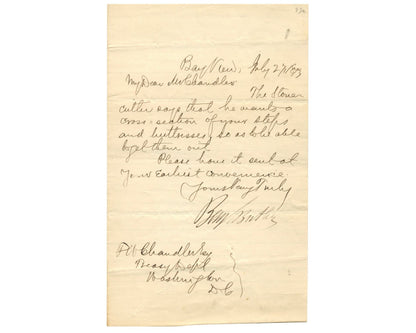 Bay View, July 27/1873
My Dear Mr Chandler
The Stone
cutter says that he wants a
cross-section of your steps
and buttresses, so as to be able
to get them out.
Please have it sent at
your Earliest Convenience
Yours Very Truly
Benj Butler
Chandler Esq
Treasy Dept
Washington
D.C.